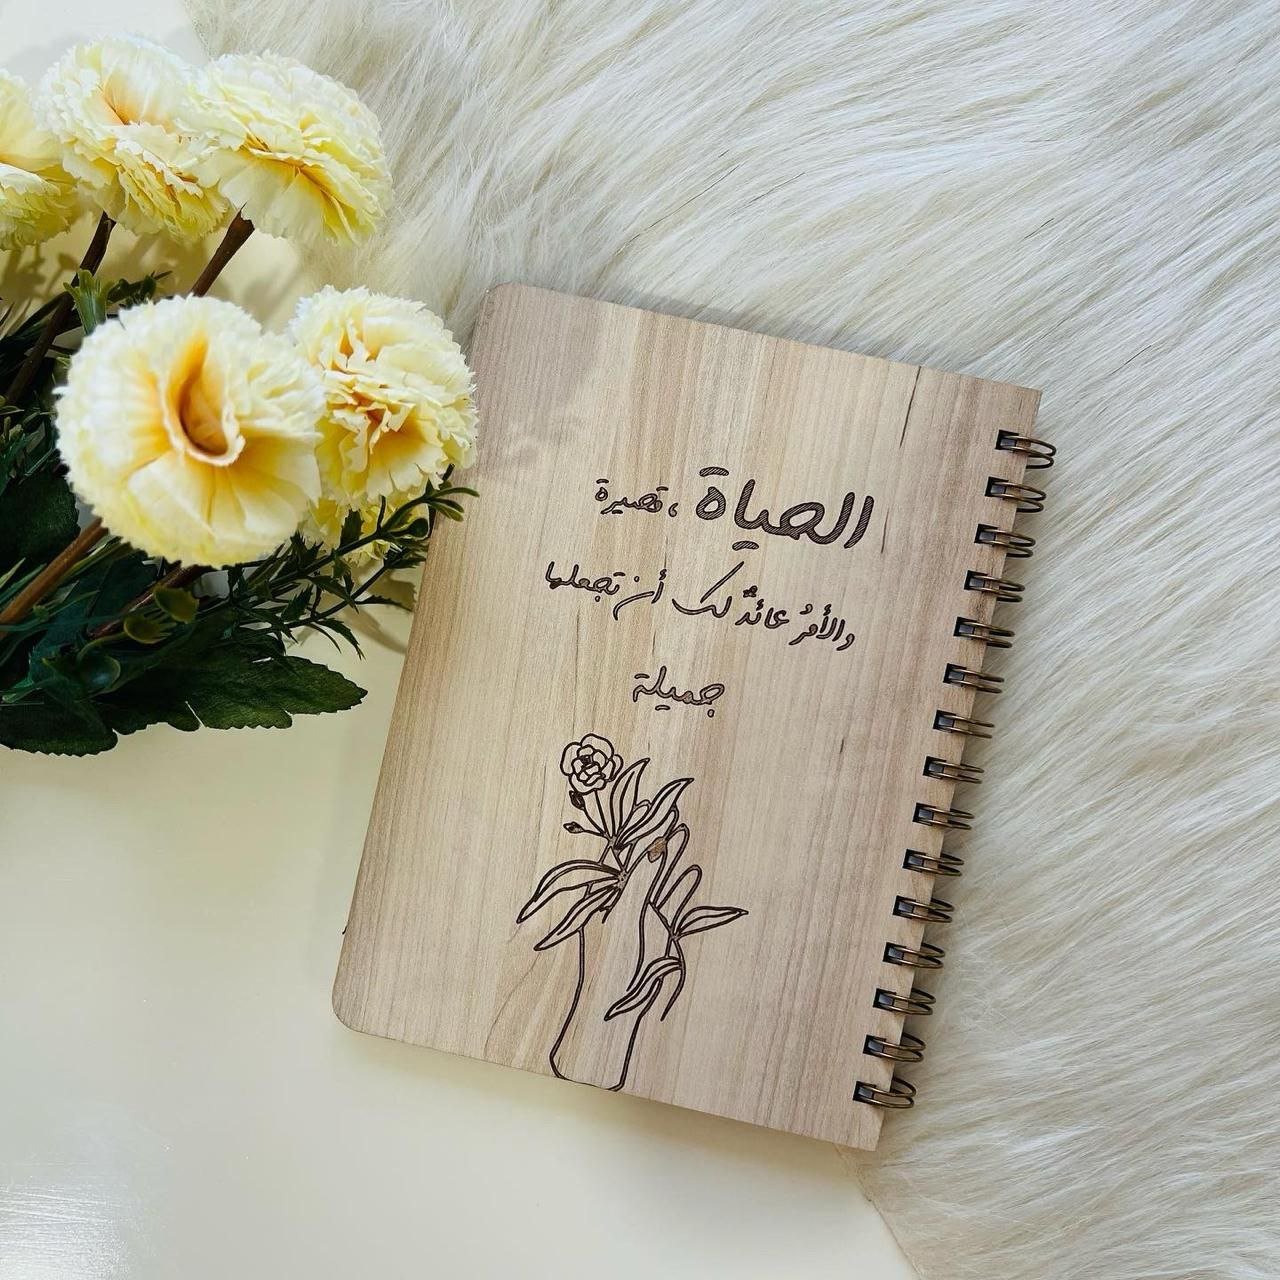 الحياة ، قصيرة
والأمرُ عائدٌ لك أن تجعلها
جميلة